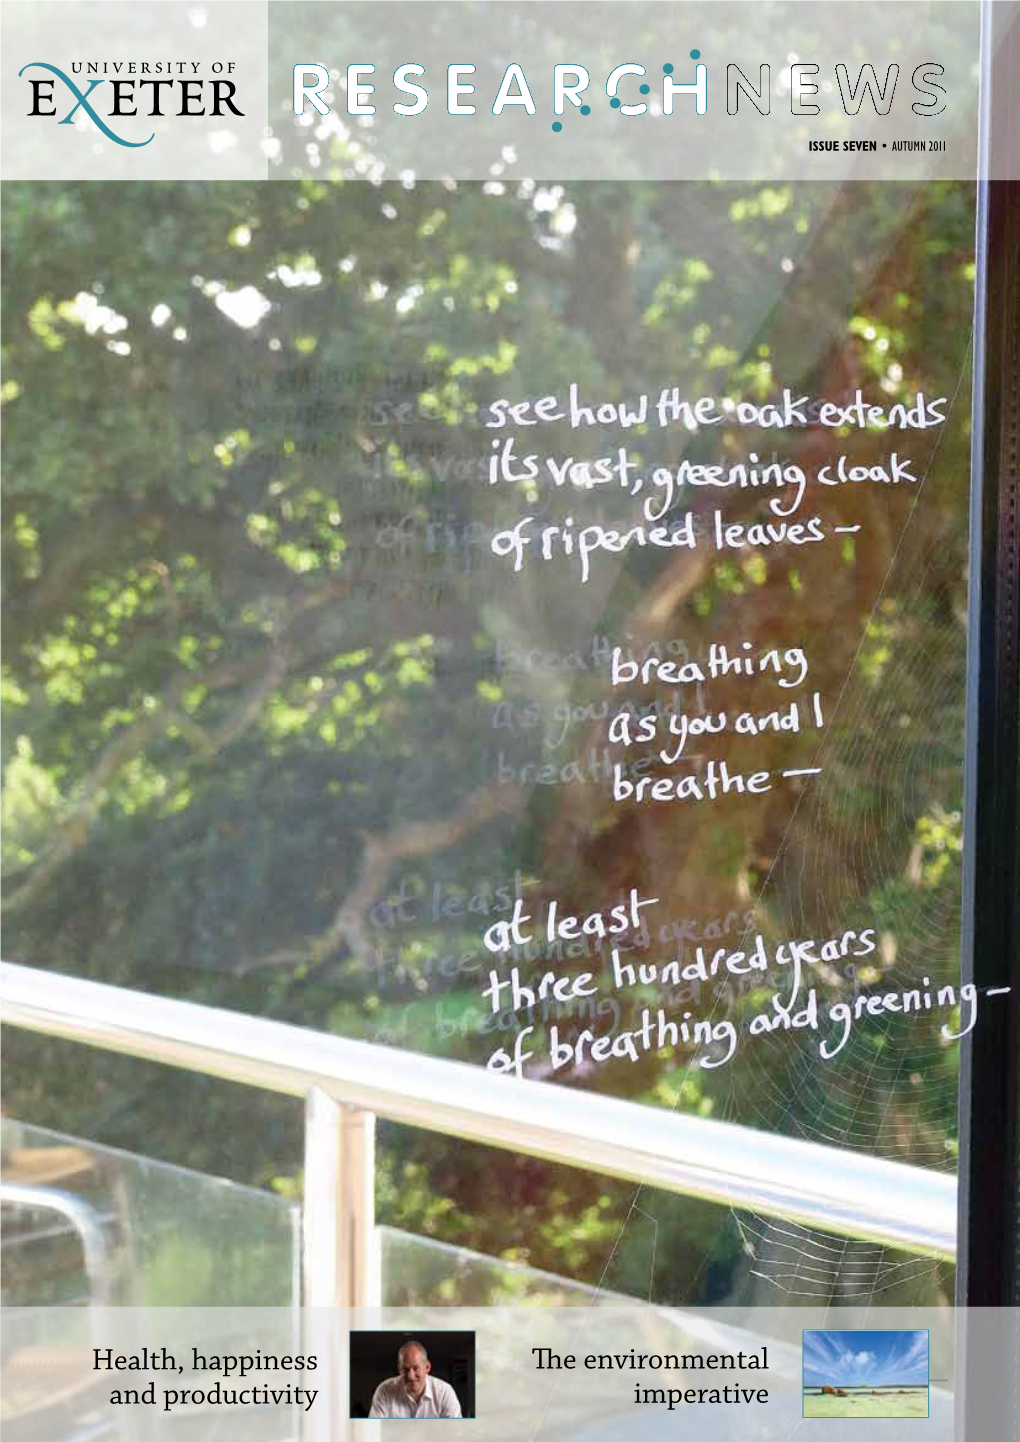 UNIVERSITY OF
EXETER
RESEARCHNEWS
ISSUE SEVEN • AUTUMN 2011
see how the oak extends
its vast, greening cloak
of ripened leaves –
breathing
as you and I
breathe –
at least
three hundred years
of breathing and greening –
Health, happiness
and productivity
The environmental
imperative